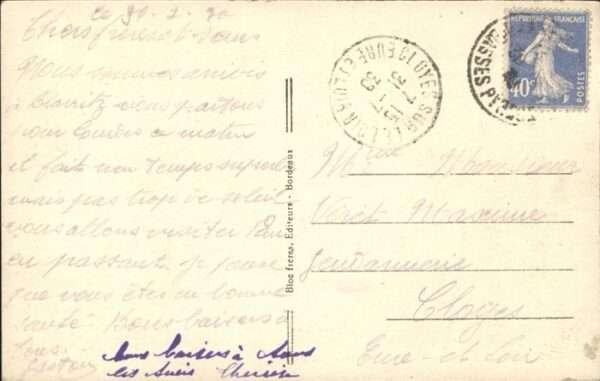 le 30-7-30
Chers frères et Sœurs
Nous sommes arrivés
à Biarritz nous partons
pour ce matin
il fait un Temps superbe
mais pas trop de soleil
nous allons visiter Pau
en passant je pense
que vous êtes en bonne
santé Bons baisers à
tous.
Gaston
bons baisers à tous
les amis
Bloc frères, Editeurs - Bordeaux
LUCE EURE ET LOIR
7 15
31
30
40c
POSTES
BASSES PYRENEES
Monsieur
Maxime
Gendarmerie
Cloyes
Eure-et-Loir